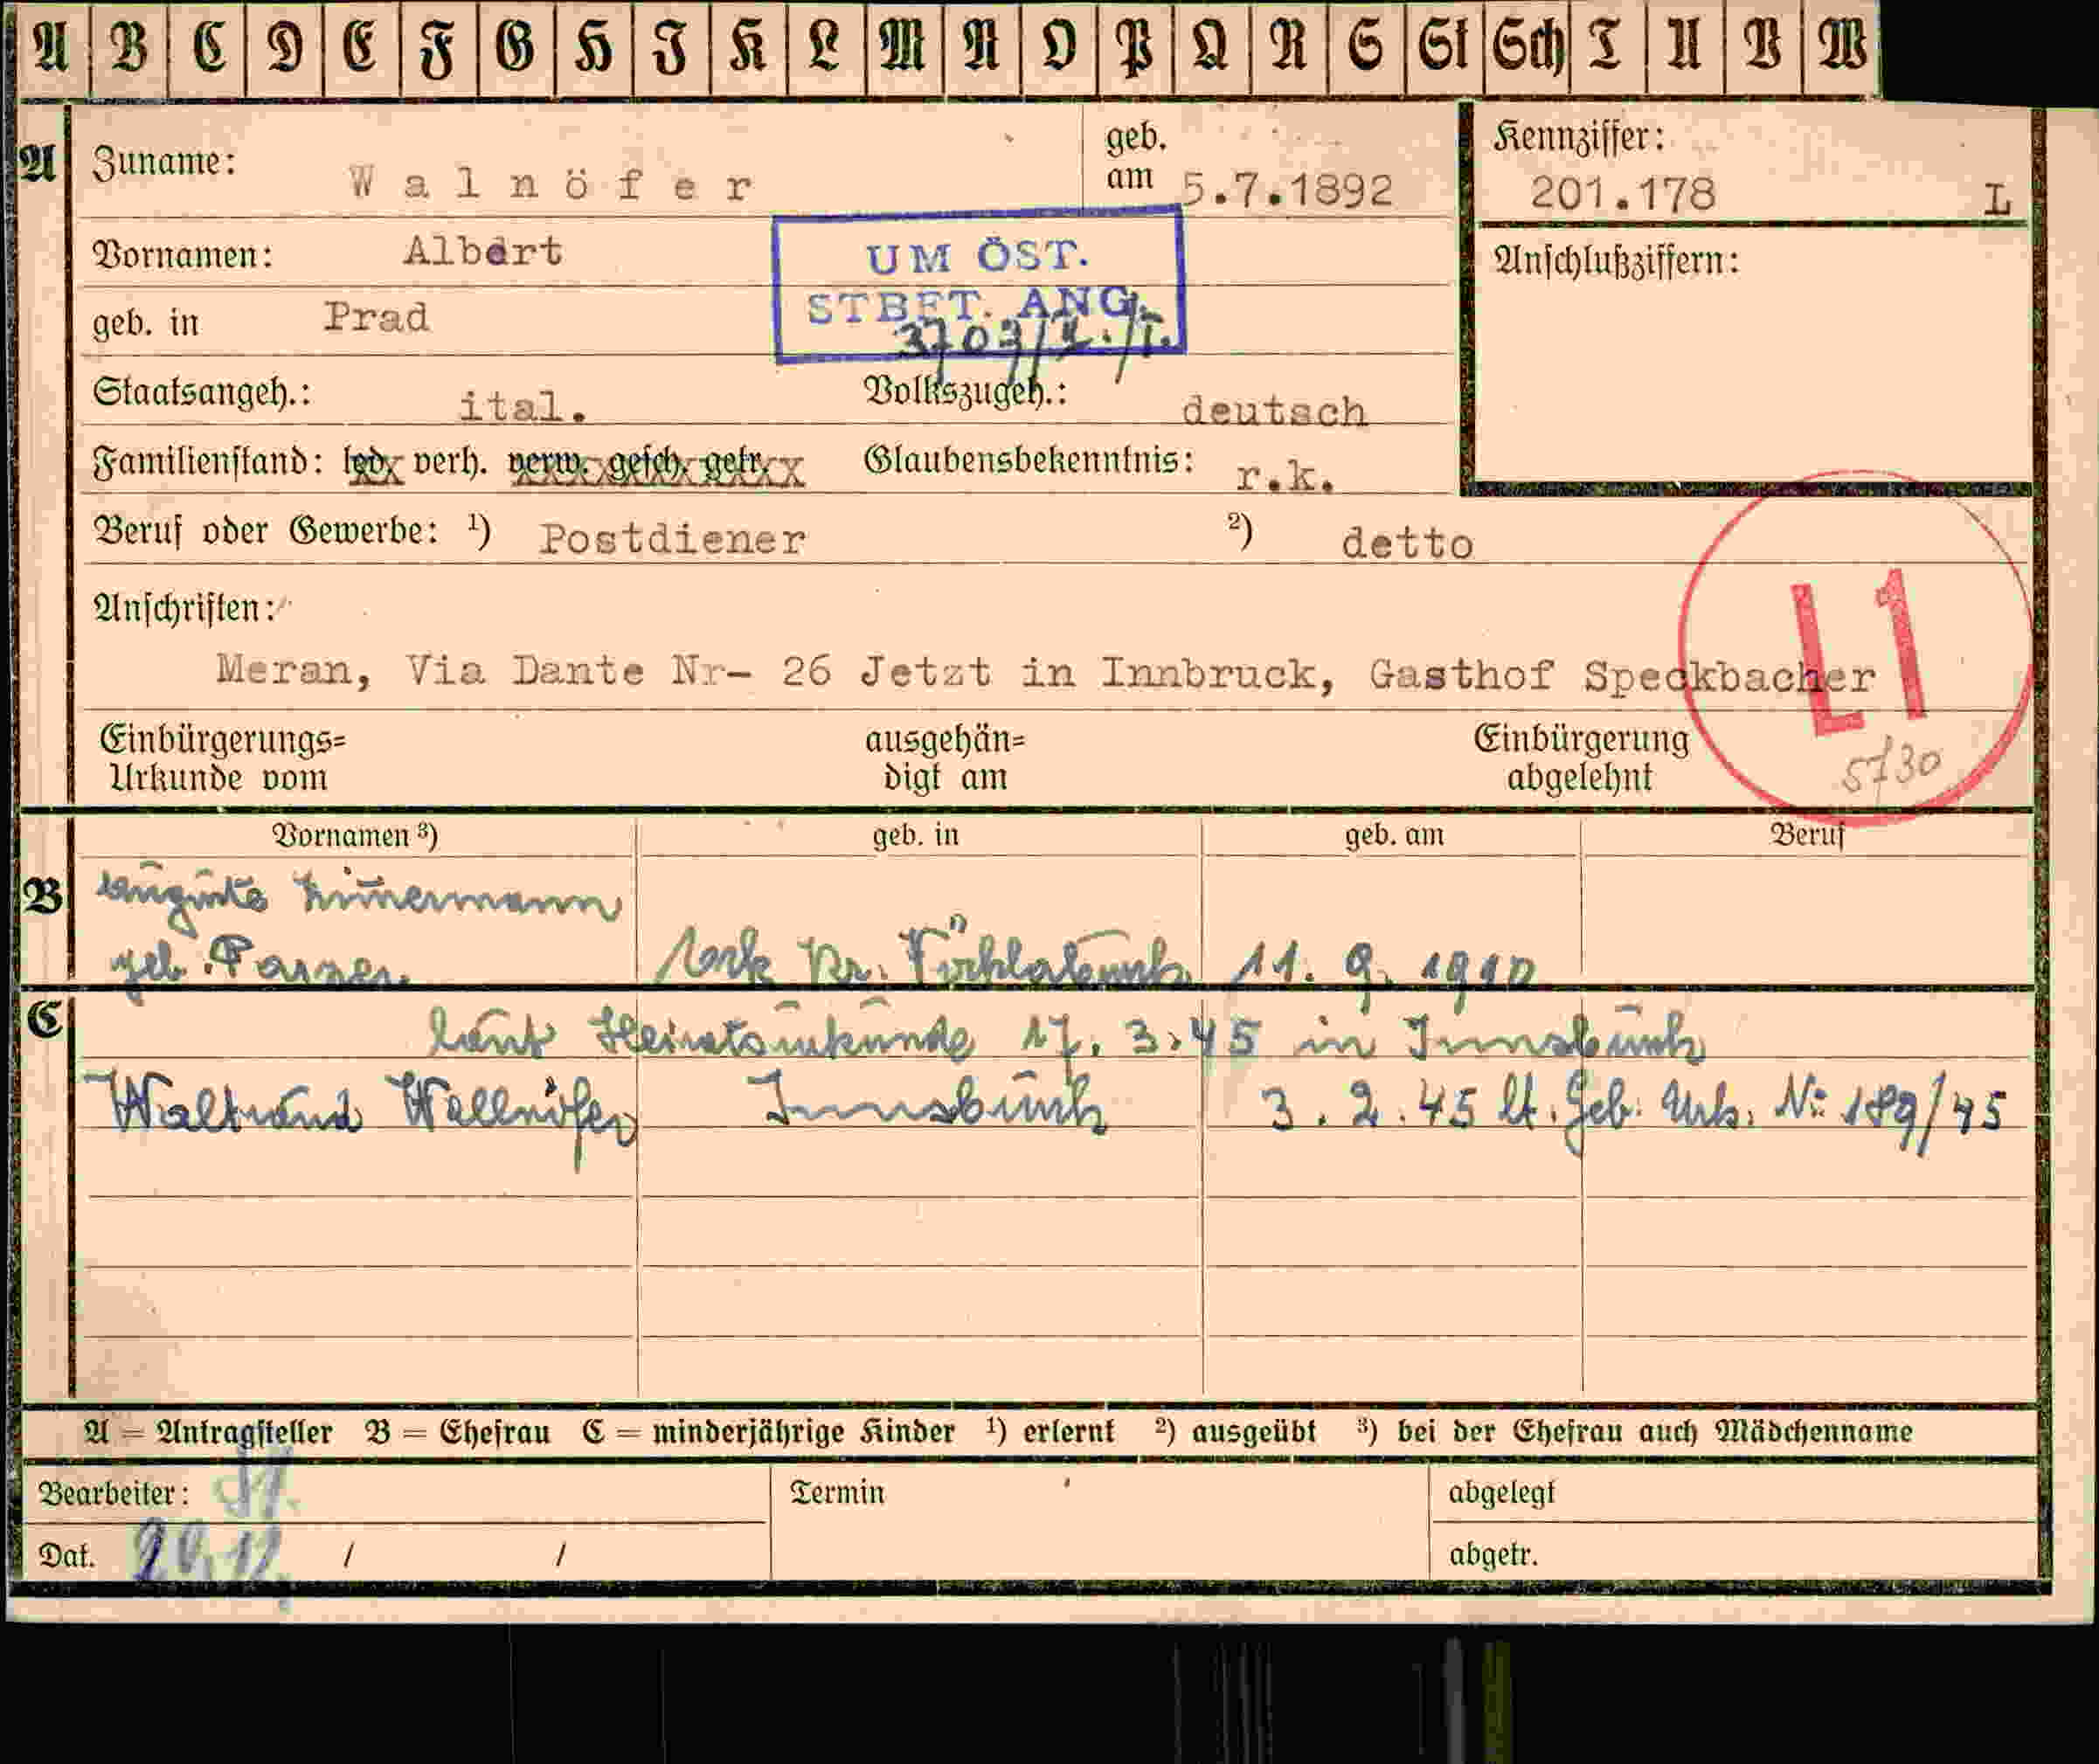 A B C D E F G H I K L M N O P Q R S St Sch T U V W
A Zuname: Walnöfer geb. am 5.7.1892 Kennziffer: 201.178 L
Vornamen: Albert
UM ÖST. STBET. ANG.
Anschlußziffern:
geb. in Prad
Staatsangeh.: ital. Volkszugeh.: deutsch
Familienstand: led. verh. verw. gesch. getr. Glaubensbekenntnis: r.k.
Beruf oder Gewerbe: 1) Postdiener 2) detto
Anschriften:
Meran, Via Dante Nr- 26 Jetzt in Innbruck, Gasthof Speckbacher
L1
5730
Einbürgerungs= ausgehän= Einbürgerung
Urkunde vom digt am abgelehnt
Vornamen 3) geb. in geb. am Beruf
B
geb. 11. 9. 1910
C
laut Heiratsurkunde 17. 3. 45 in Innsbruck
Waltraud Wallnöfer Innsbruck 3. 2. 45 lt. Geb. Urk. No 189/45
A = Antragsteller B = Ehefrau C = minderjährige Kinder 1) erlernt 2) ausgeübt 3) bei der Ehefrau auch Mädchenname
Bearbeiter: Termin abgelegt
Dat. / / abgetr.